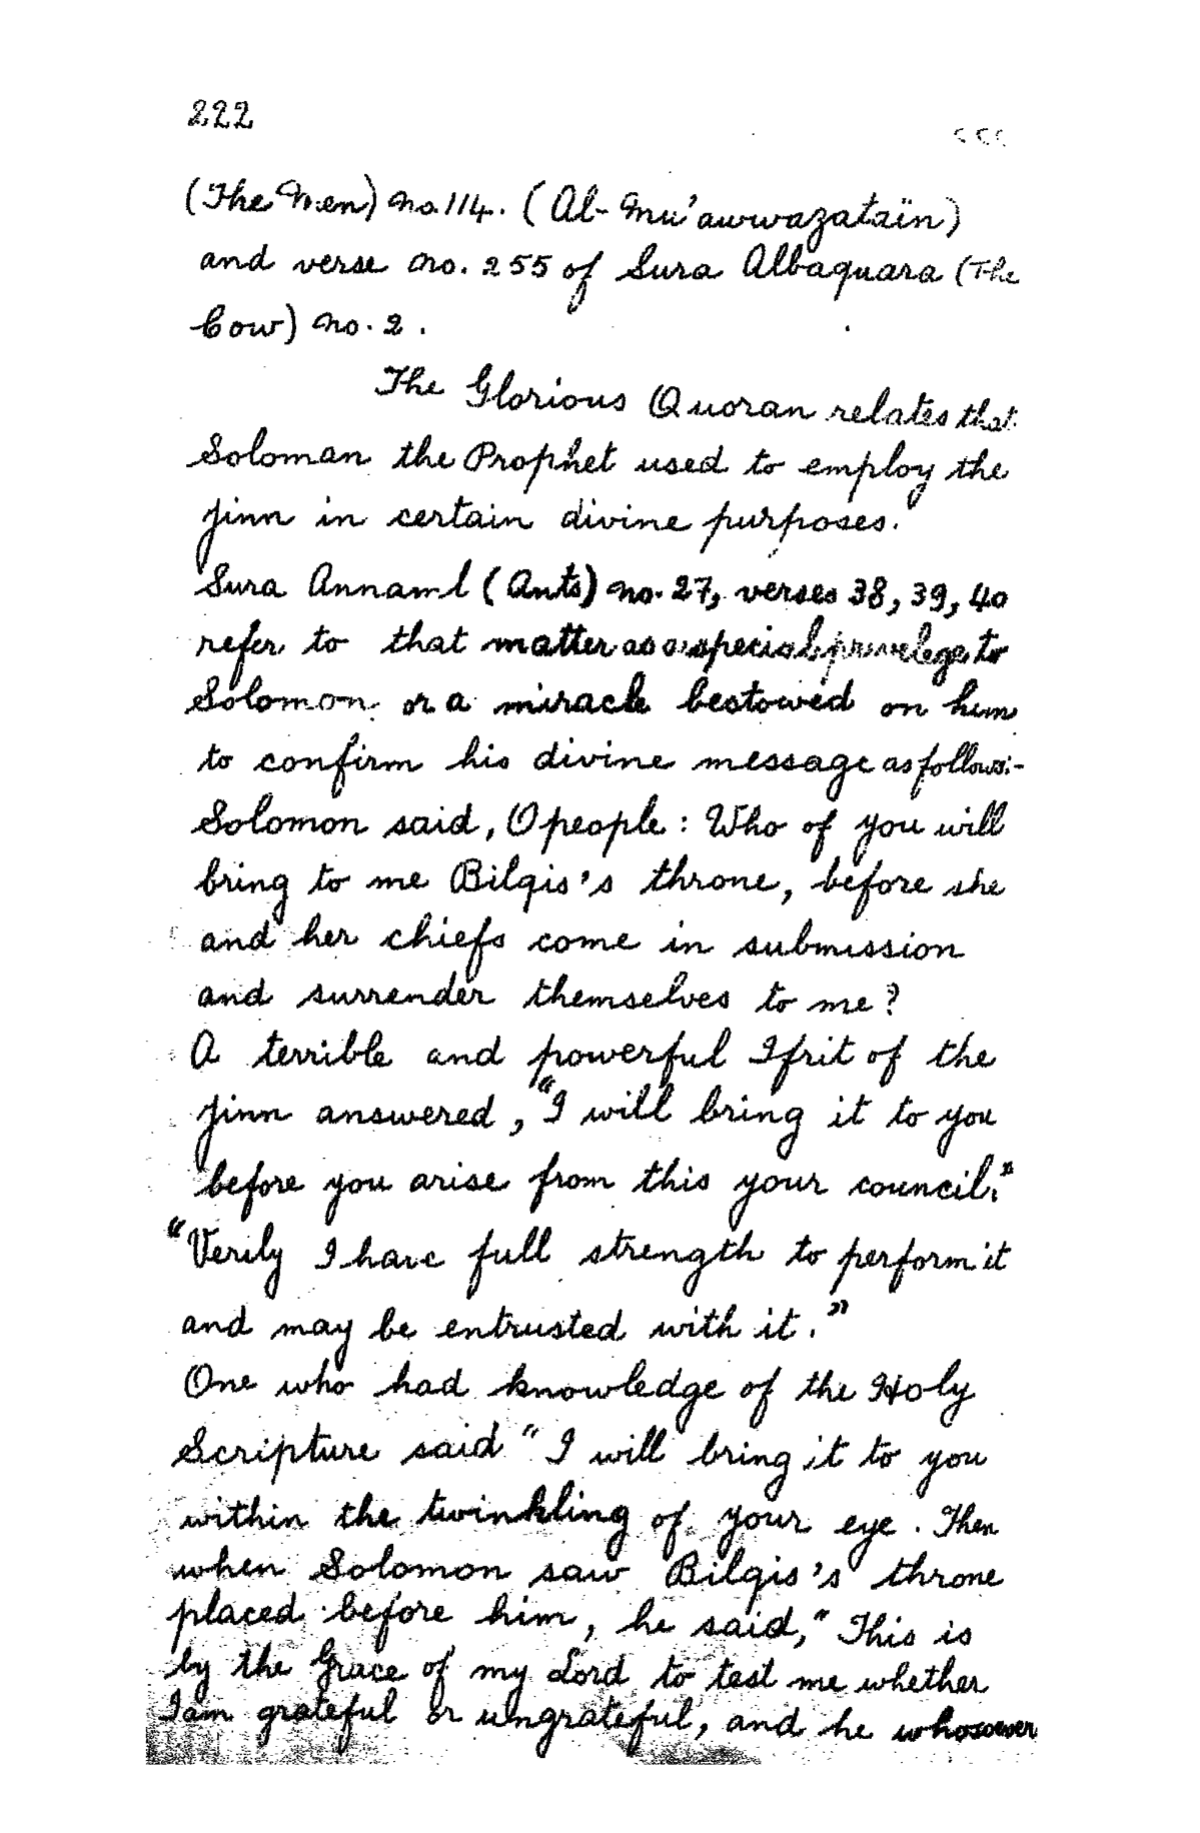 222
(The Men) No. 114. ( Al- Mu'awwazataïn)
and verse No. 255 of Sura Albaquara (The
Cow) No. 2 .
The Glorious Quoran relates that
Soloman the Prophet used to employ the
Jinn in certain divine purposes.
Sura Annaml (Ants) No. 27, verses 38, 39, 40
refer to that matter as a special privelege to
Solomon or a miracle bestowed on him
to confirm his divine message as follows:-
Solomon said, O people : Who of you will
bring to me Bilqis's throne, before she
and her chiefs come in submission
and surrender themselves to me?
A terrible and powerful Ifrit of the
Jinn answered, "I will bring it to you
before you arise from this your council."
"Verily I have full strength to perform it
and may be entrusted with it."
One who had knowledge of the Holy
Scripture said "I will bring it to you
within the twinkling of your eye. Then
when Solomon saw Bilqis's throne
placed before him, he said, "This is
by the Grace of my Lord to test me whether
I am grateful or ungrateful, and he whosoever